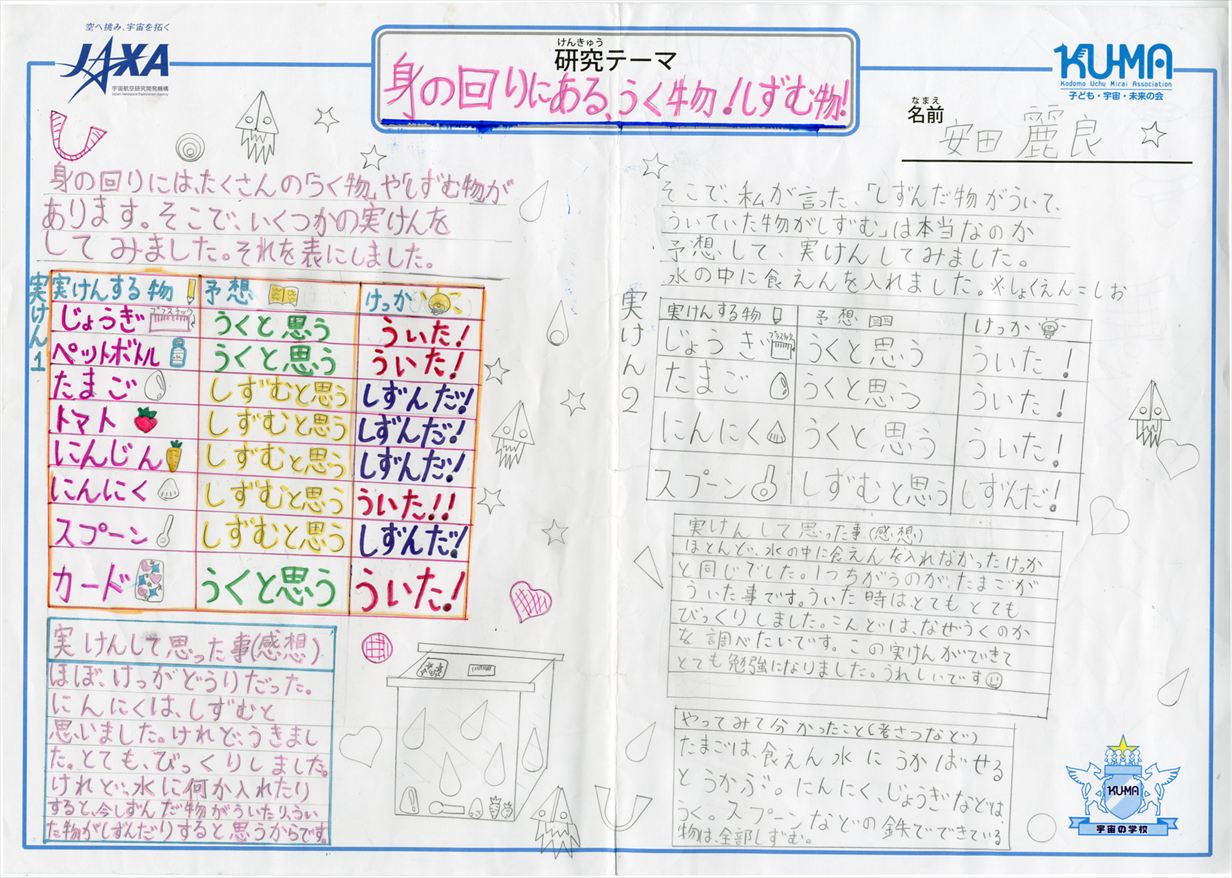 空へ挑み、宇宙を拓く
JAXA
宇宙航空研究開発機構
Japan Aerospace Exploration Agency
けんきゅう
研究テーマ
身の回りにある、うく物!しずむ物!
KU-MA
Kodomo Uchu Mirai Association
子ども・宇宙・未来の会
なまえ
名前
安田 麗良
身の回りには、たくさんの「うく物」や「しずむ物」が
あります。そこで、いくつかの実けんを
してみました。それを表にしました。
実けん1
実けんする物 予想 けっか
じょうぎ プラスチック うくと思う ういた!
ペットボトル うくと思う ういた!
たまご しずむと思う しずんだ!
トマト しずむと思う しずんだ!
にんじん しずむと思う しずんだ!
にんにく しずむと思う ういた!!
スプーン しずむと思う しずんだ!
カード うくと思う ういた!
実けんして思った事(感想)
ほぼ、けっかどうりだった。
にんにくは、しずむと
思いました。けれど、うきまし
た。とても、びっくりしました。
けれど、水に何か入れたり
すると、今しずんだ物がういたり、うい
た物がしずんだりすると思うからです。
そこで、私が言った、「しずんだ物がういて、
ういていた物がしずむ」は本当なのか
予想して、実けんしてみました。
水の中に食えんを入れました。※しょくえん=しお
実けん2
実けんする物 予想 けっか
じょうぎ プラスチック うくと思う ういた!
たまご うくと思う ういた!
にんにく うくと思う ういた!
スプーン しずむと思う しずんだ!
実けんして思った事(感想)
ほとんど、水の中に食えんを入れなかったけっか
と同じでした。1つちがうのが、たまごが
ういた事です。ういた時は、とてもとても
びっくりしました。こんどは、なぜうくのか
を調べたいです。この実けんができて
とても勉強になりました。うれしいです
やってみて分かったこと(考さつなど)
たまごは、食えん水にうかばせる
とうかぶ。にんにく、じょうぎなどは
うく。スプーンなどの鉄でできている
物は、全部しずむ。
KU-MA
宇宙の学校